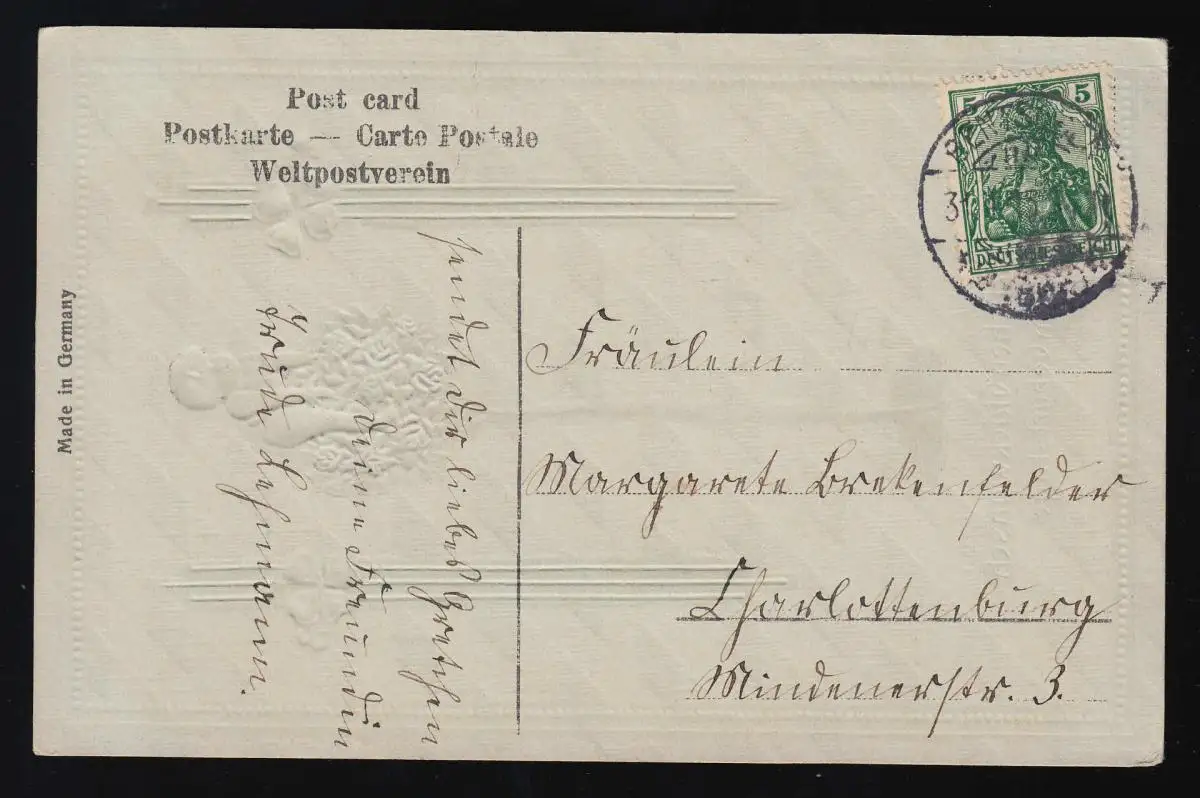 Post card
Postkarte — Carte Postale
Weltpostverein
Made in Germany
sendet dir liebes Gretchen
deine Freundin
Trude Lehmann.
5 5
DEUTSCHES REICH
Fräulein
Margarete Brekenfelder
Charlottenburg
Mindenerstr. 3.